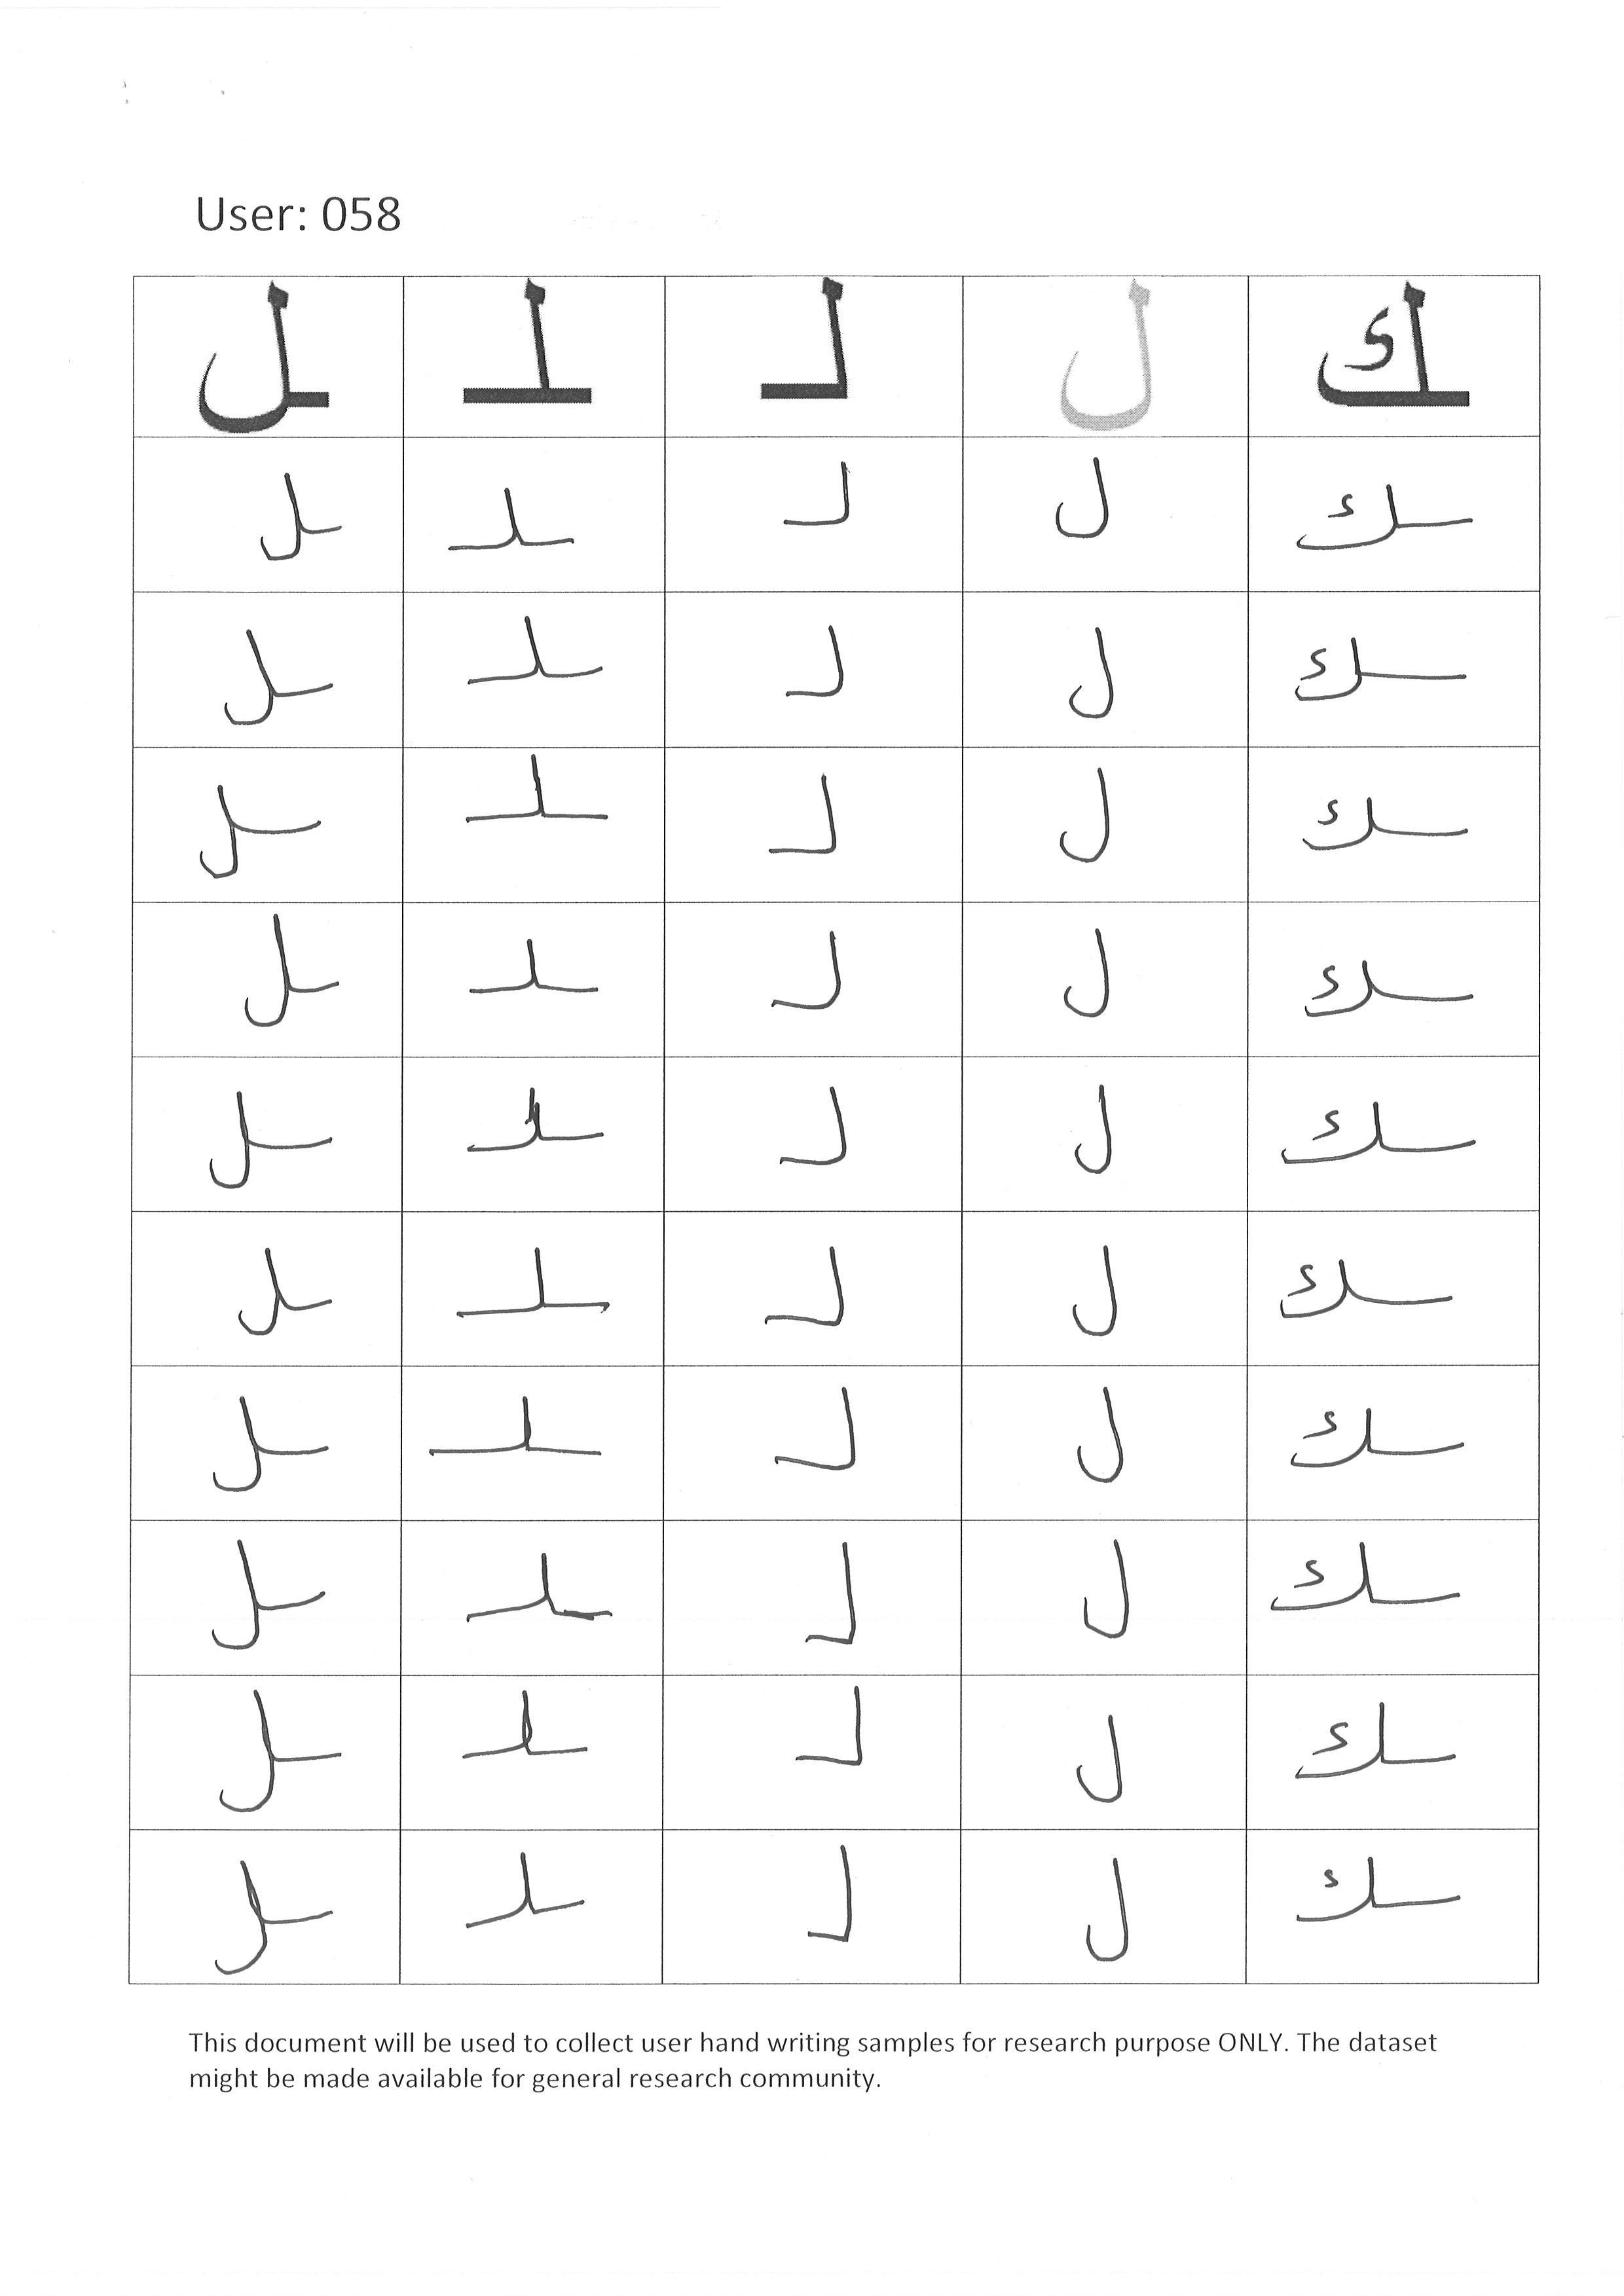 User: 058
ـك ل لـ ـلـ ـل
ـك ل لـ ـلـ ـل
ـك ل لـ ـلـ ـل
ـك ل لـ ـلـ ـل
ـك ل لـ ـلـ ـل
ـك ل لـ ـلـ ـل
ـك ل لـ ـلـ ـل
ـك ل لـ ـلـ ـل
ـك ل لـ ـلـ ـل
ـك ل لـ ـلـ ـل
ـك ل لـ ـلـ ـل
This document will be used to collect user hand writing samples for research purpose ONLY. The dataset
might be made available for general research community.